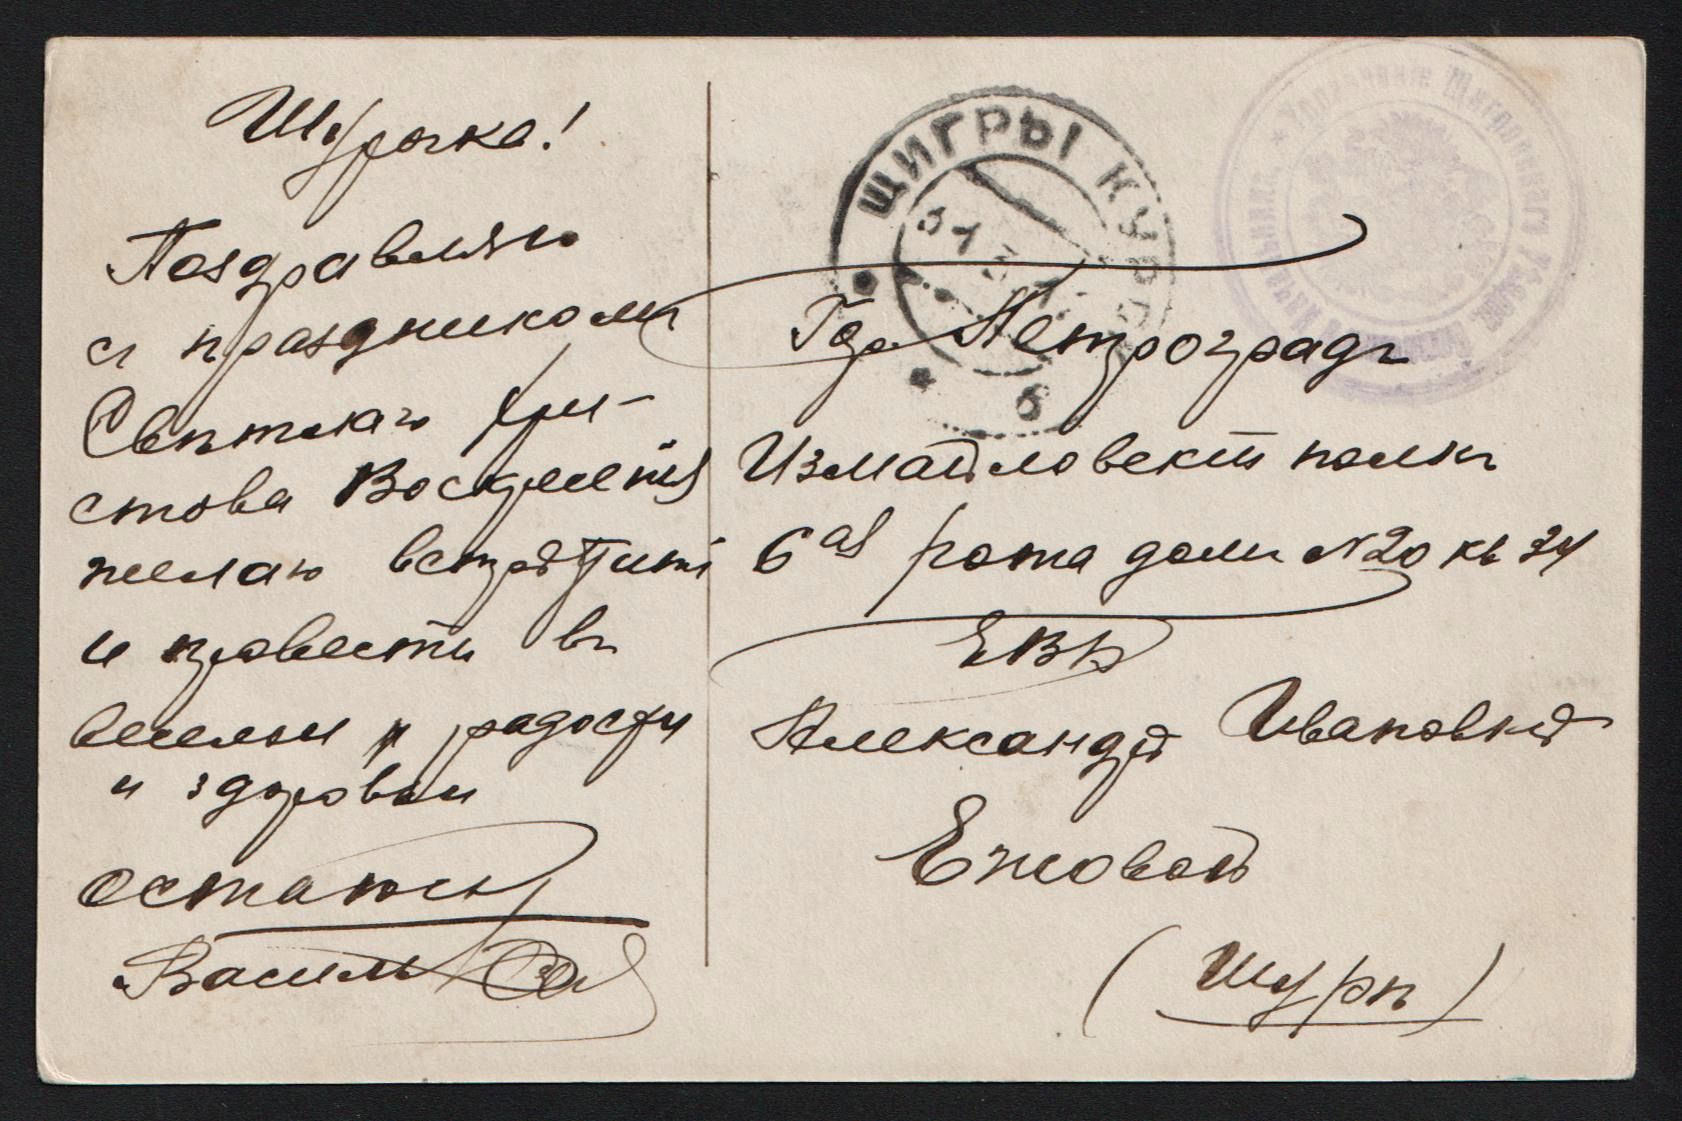 Шурочка!
Поздравляю
съ праздникомъ
Свѣтлаго Хри-
стова Воскресенія
желаю встрѣтить
и провести въ
весельи и радости
и здоровьи
остаюсь
Василь
ЩИГРЫ КУРС
31 3
б
Управленіе Щигровскаго Уѣзднаго Воинскаго Начальника
Гор Петроградъ
Измайловскій полкъ
6ая рота домъ №20 кв 34
ЕВБ
Александрѣ Ивановнѣ
Ежовой
(Шурѣ)